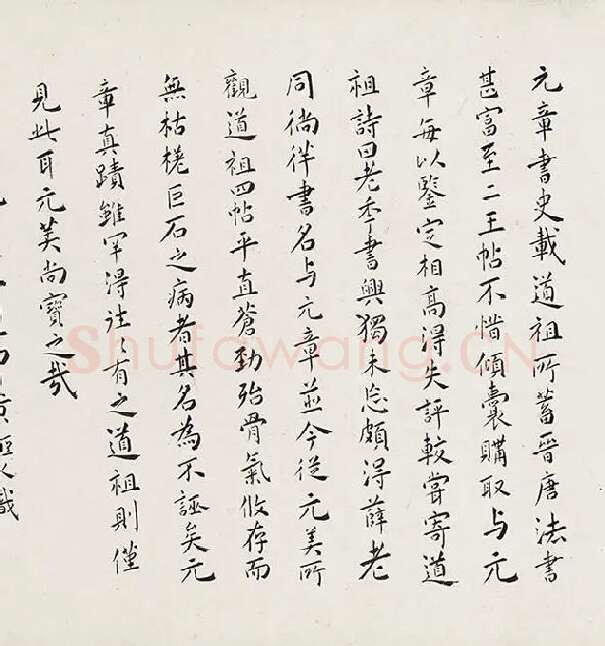 元章書史載道祖所蓄晉唐法書
甚富至二王帖不惜傾囊購取与元
章每以鑒定相高得失評較嘗寄道
祖詩曰老季書興獨未忘頗得薛老
同徜徉書名与元章並今從元美所
觀道祖四帖平直蒼勁殆骨氣攸存而
無枯槎巨石之病者其名為不誣矣元
章真蹟雖罕得往々有之道祖則僅
見此耳元美尚寶之哉
Shufawang.CN